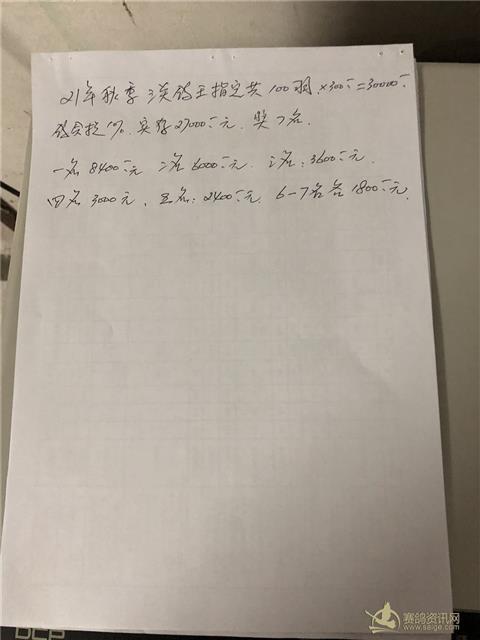 21年秋季3关鸽王指定共100羽×300元=30000元
鸽会提10%.实得27000元.奖7名.
一名8400元 二名6000元.三名:3600元.
四名3000元、五名:2400元.6-7名各1800元.
赛鸽资讯网
www.saige.com
DCP